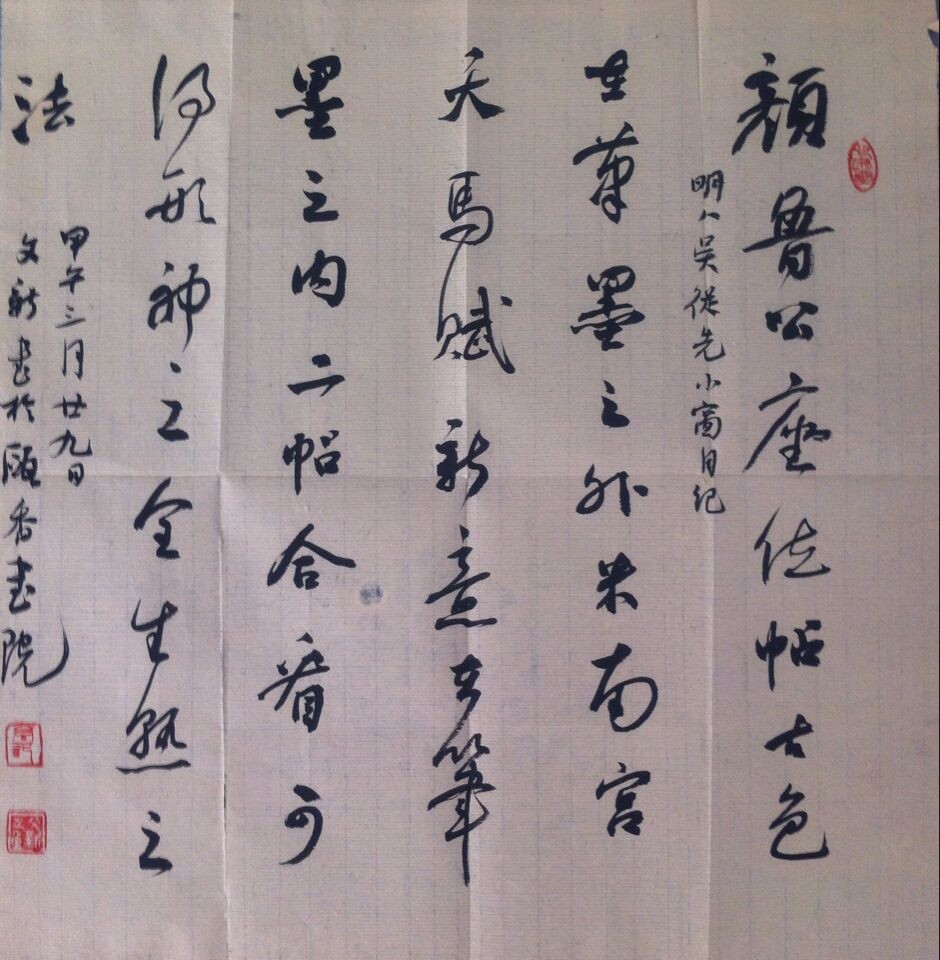 顏魯公座位帖古色
明人吳從先小窗自紀
在筆墨之外米南宮
天馬賦新意在筆
墨之內二帖合看可
得形神之工全生熟之
法
甲午三月廿九日
文新書於頤香書院